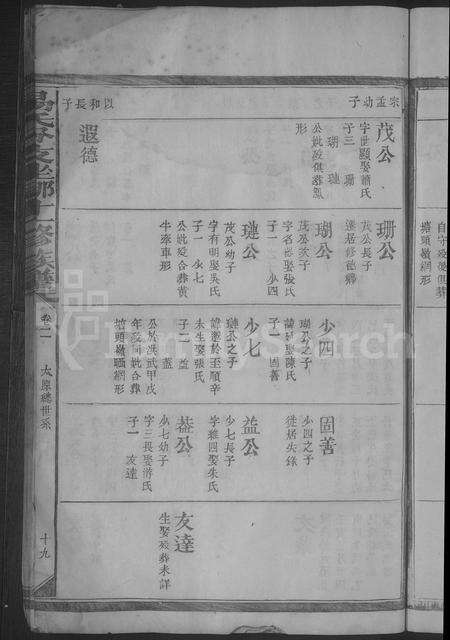 宗孟幼子
茂公
字世顯娶濟氏
子三 珊
瑚 璉
公妣歿俱葬
形
以和長子
遐德
珊公
茂公長子
遷居修德鄉
瑚公
茂公次子
字名 娶張氏
子一 少四
璉公
茂公幼子
字有明娶吳氏
子一 少七
公妣歿合葬黃
牛 車形
少四
瑚公之子
娶陳氏
子一 固善
少七
璉公之子
諱 於至順辛
未生娶張氏
子二 益
公於洪武甲戌
年歿同妣合葬
塘頭嶺 網形
固善
少四之子
徙居失錄
益公
少七長子
字雅四娶朱氏
少七幼子
字三長娶濟氏
子一 友達
友達
生娶歿葬未詳
自守歿俱葬
塘頭嶺網形
修族譜
卷二
太原總世系
十九
FamilySearch